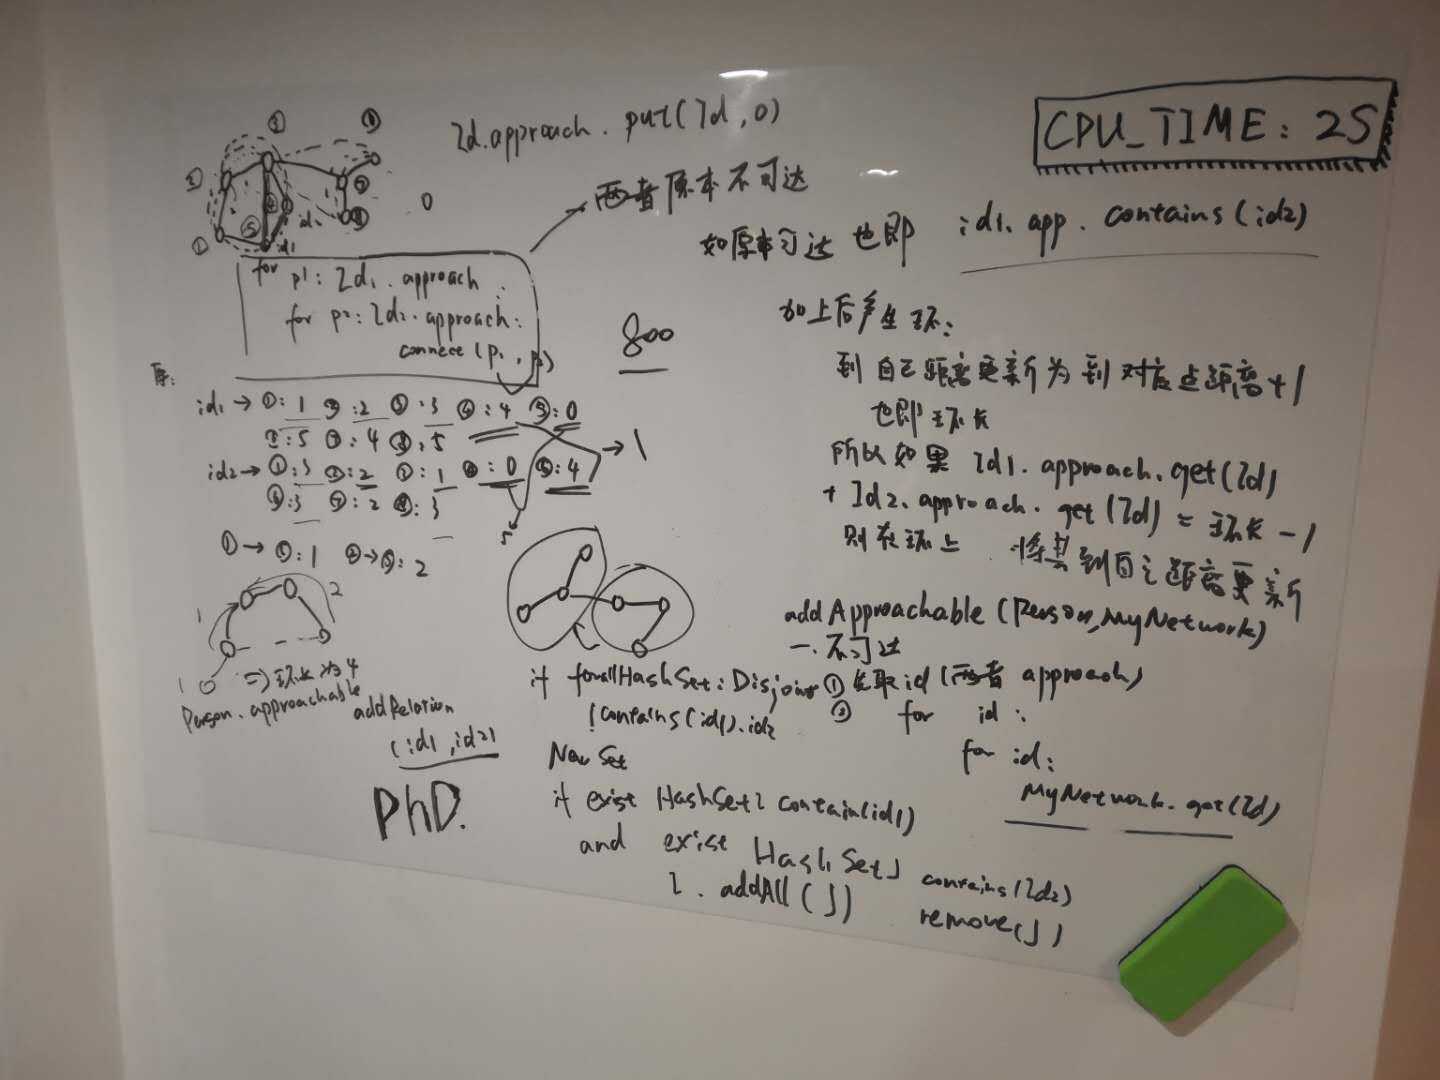 Id.approach.put(Id,0)
CPU_TIME: 2S
两者原本不可达
如原本可达也即 id1.app.contains(id2)
0
for p1: Id1.approach:
for p2: Id2.approach:
connect(p1, p2)
800
加上后产生环:
到自己距离更新为到对应点距离+1
也即环长
所以如果 Id1.approach.get(Id)
+ Id2.approach.get(Id) = 环长-1
则在环上 将其到自己距离更新
原:
id1→①:1 ②:2 ③:3 ④:4 ⑤:0
⑥:5 ⑦:4 ⑧:5
→1
id2→①:3 ②:2 ③:1 ④:0 ⑤:4
⑥:3 ⑦:2 ⑧:3
5
1
2
1
⇒环长为4
addApproachable(Person,MyNetwork)
一.不可达
①先取id(两者approach)
② for id:
for id:
MyNetwork.get(Id)
Person.approachable
addRelation
(id1,id2)
PhD.
if forall HashSet: Disjoint
!contains(id1).id2
New Set
if exist HashSet I contain(id1)
and exist HashSet J contains(Id2)
I.addAll(J) remove(J)